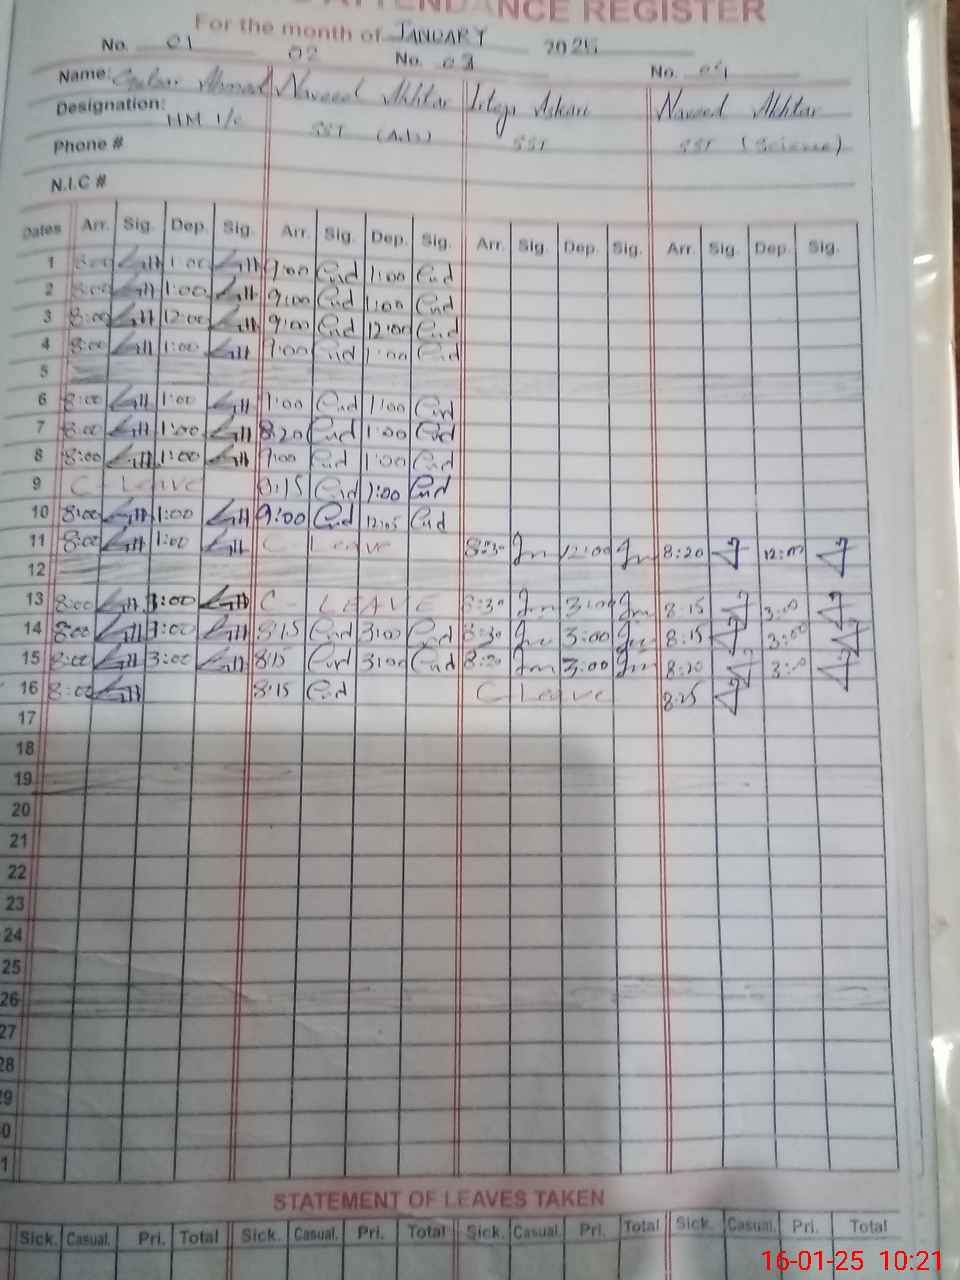 ATTENDANCE REGISTER
For the month of JANUARY 2025
No. 01 02 No. 03 No. 04
Name: Ahmad Naveed Akhtar Askari Naveed Akhtar
Designation: HM I/C SST (Arts) SST SST (Science)
Phone #
N.I.C #
Dates Arr. Sig. Dep. Sig. Arr. Sig. Dep. Sig. Arr. Sig. Dep. Sig. Arr. Sig. Dep. Sig.
1 8:00 1:00 9:00 1:00
2 8:00 1:00 9:00 1:00
3 8:00 12:00 9:00 12:00
4 8:00 1:00 9:00 1:00
5
6 8:00 1:00 1:00
7 8:00 1:00 8:20 1:00
8 8:00 1:00 9:00 1:00
9 C - Leave 1:00
10 8:00 1:00 9:00 12:05
11 8:00 1:00 C Leave 8:30 12:00 8:20 12:00
12
13 8:00 3:00 C - LEAVE 8:30 3:00 8:15 3:00
14 8:00 3:00 8:15 3:00 8:30 3:00 8:15 3:00
15 8:00 3:00 8:15 3:00 3:00 8:20 3:00
16 8:00 8:15 C Leave 8:25
17
18
19
20
21
22
23
24
25
26
27
28
29
0
1
STATEMENT OF LEAVES TAKEN
Sick. Casual. Pri. Total Sick. Casual. Pri. Total Sick. Casual. Pri. Total Sick. Casual. Pri. Total
16-01-25 10:21